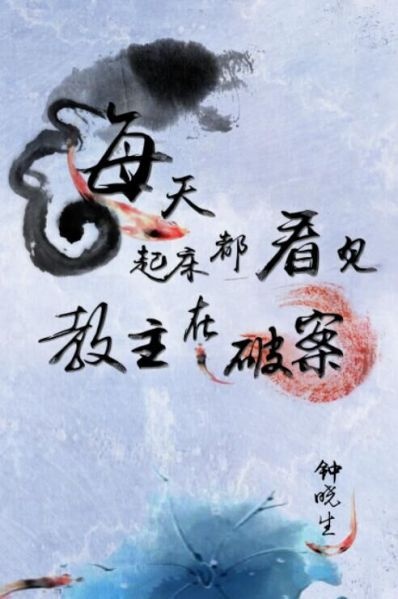 每天
起床都看见
教主在破案
钟晓生